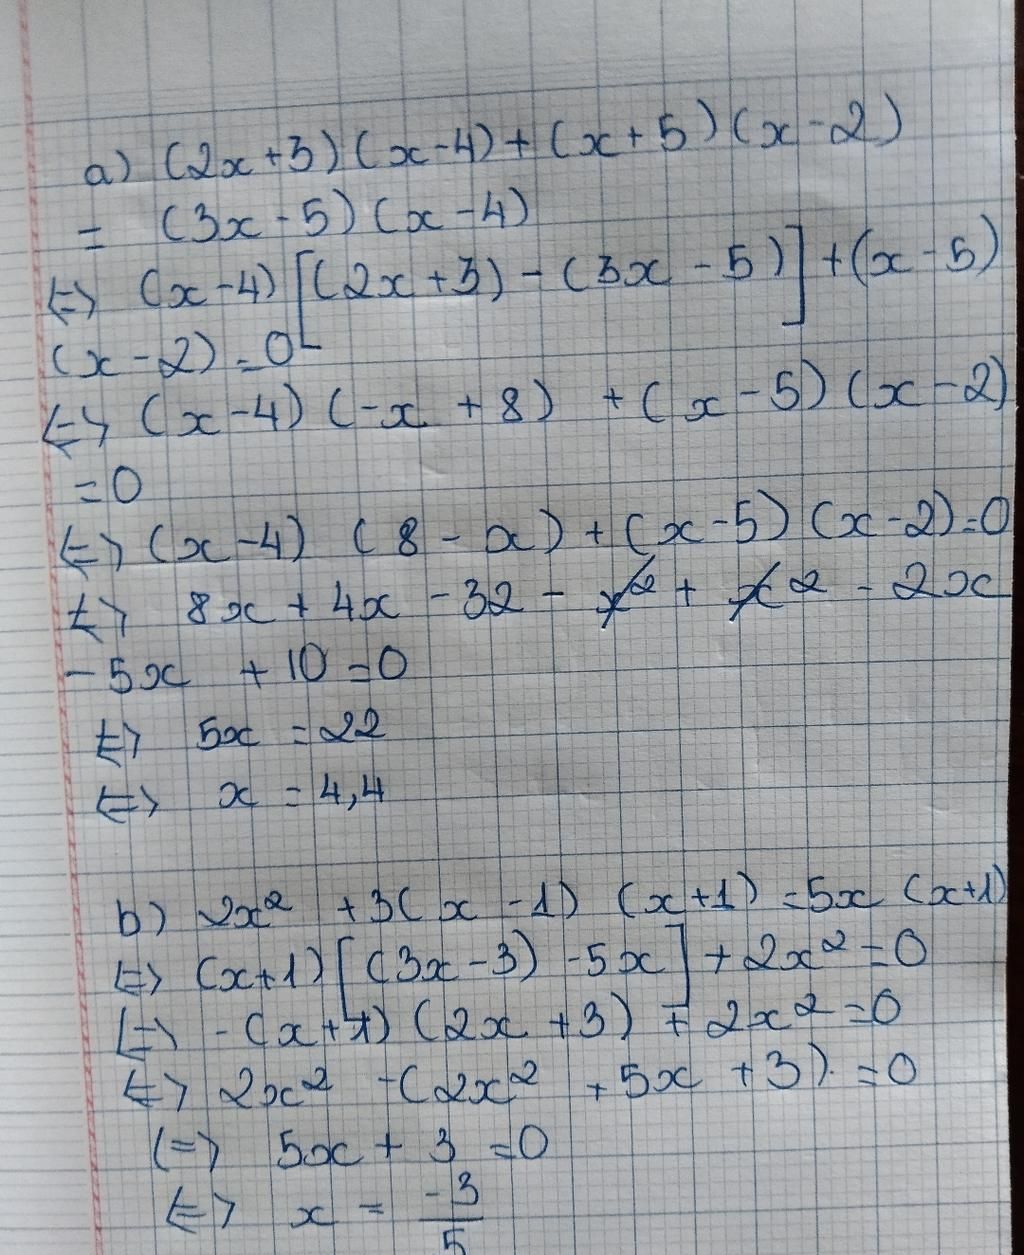 a) (2x+3)(x-4)+(x+5)(x-2)
= (3x-5)(x-4)
<=> (x-4)[(2x+3)-(3x-5)]+(x-5)
(x-2)=0
<=> (x-4)(-x+8) +(x-5)(x-2)
=0
<=> (x-4) (8-x)+(x-5)(x-2)=0
<=> 8x+4x-32-x²+x²-2x
-5x +10=0
<=> 5x=22
<=> x=4,4
b) 2x²+3(x-1)(x+1)=5x(x+1)
<=> (x+1)[(3x-3)-5x]+2x²=0
<=> -(x+1)(2x+3)+2x²=0
<=> 2x²-(2x²+5x+3)=0
<=> 5x+3=0
<=> x=-3/5